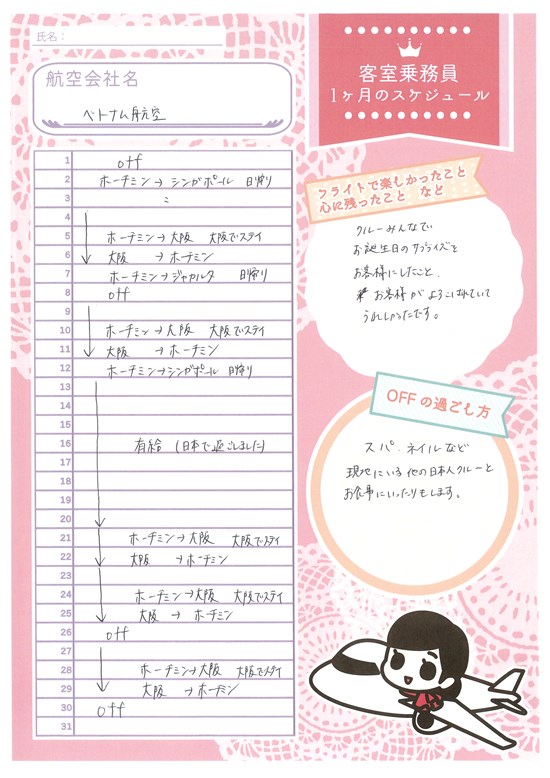 氏名：
航空会社名
ベトナム航空
客室乗務員
1ヶ月のスケジュール
1 off
2 ホーチミン→シンガポール 日帰り
3
4
5 ホーチミン→大阪 大阪でステイ
6 大阪 →ホーチミン
7 ホーチミン→ジャカルタ 日帰り
8 off
9
10 ホーチミン→大阪 大阪でステイ
11 大阪 →ホーチミン
12 ホーチミン→シンガポール 日帰り
13
14
15
16 有給 (日本で過ごしました)
17
18
19
20
21 ホーチミン→大阪 大阪でステイ
22 大阪 →ホーチミン
23
24 ホーチミン→大阪 大阪でステイ
25 大阪 → ホーチミン
26 off
27
28 ホーチミン→大阪 大阪でステイ
29 大阪 →ホーチミン
30 off
31
フライトで楽しかったこと
心に残ったこと など
クルーみんなで
お誕生日のサプライズを
お客様にしたこと。
お客様がよろこばれていて
うれしかったです。
OFFの過ごし方
スパ、ネイルなど
現地にいる他の日本人クルーと
お食事にいったりもします。